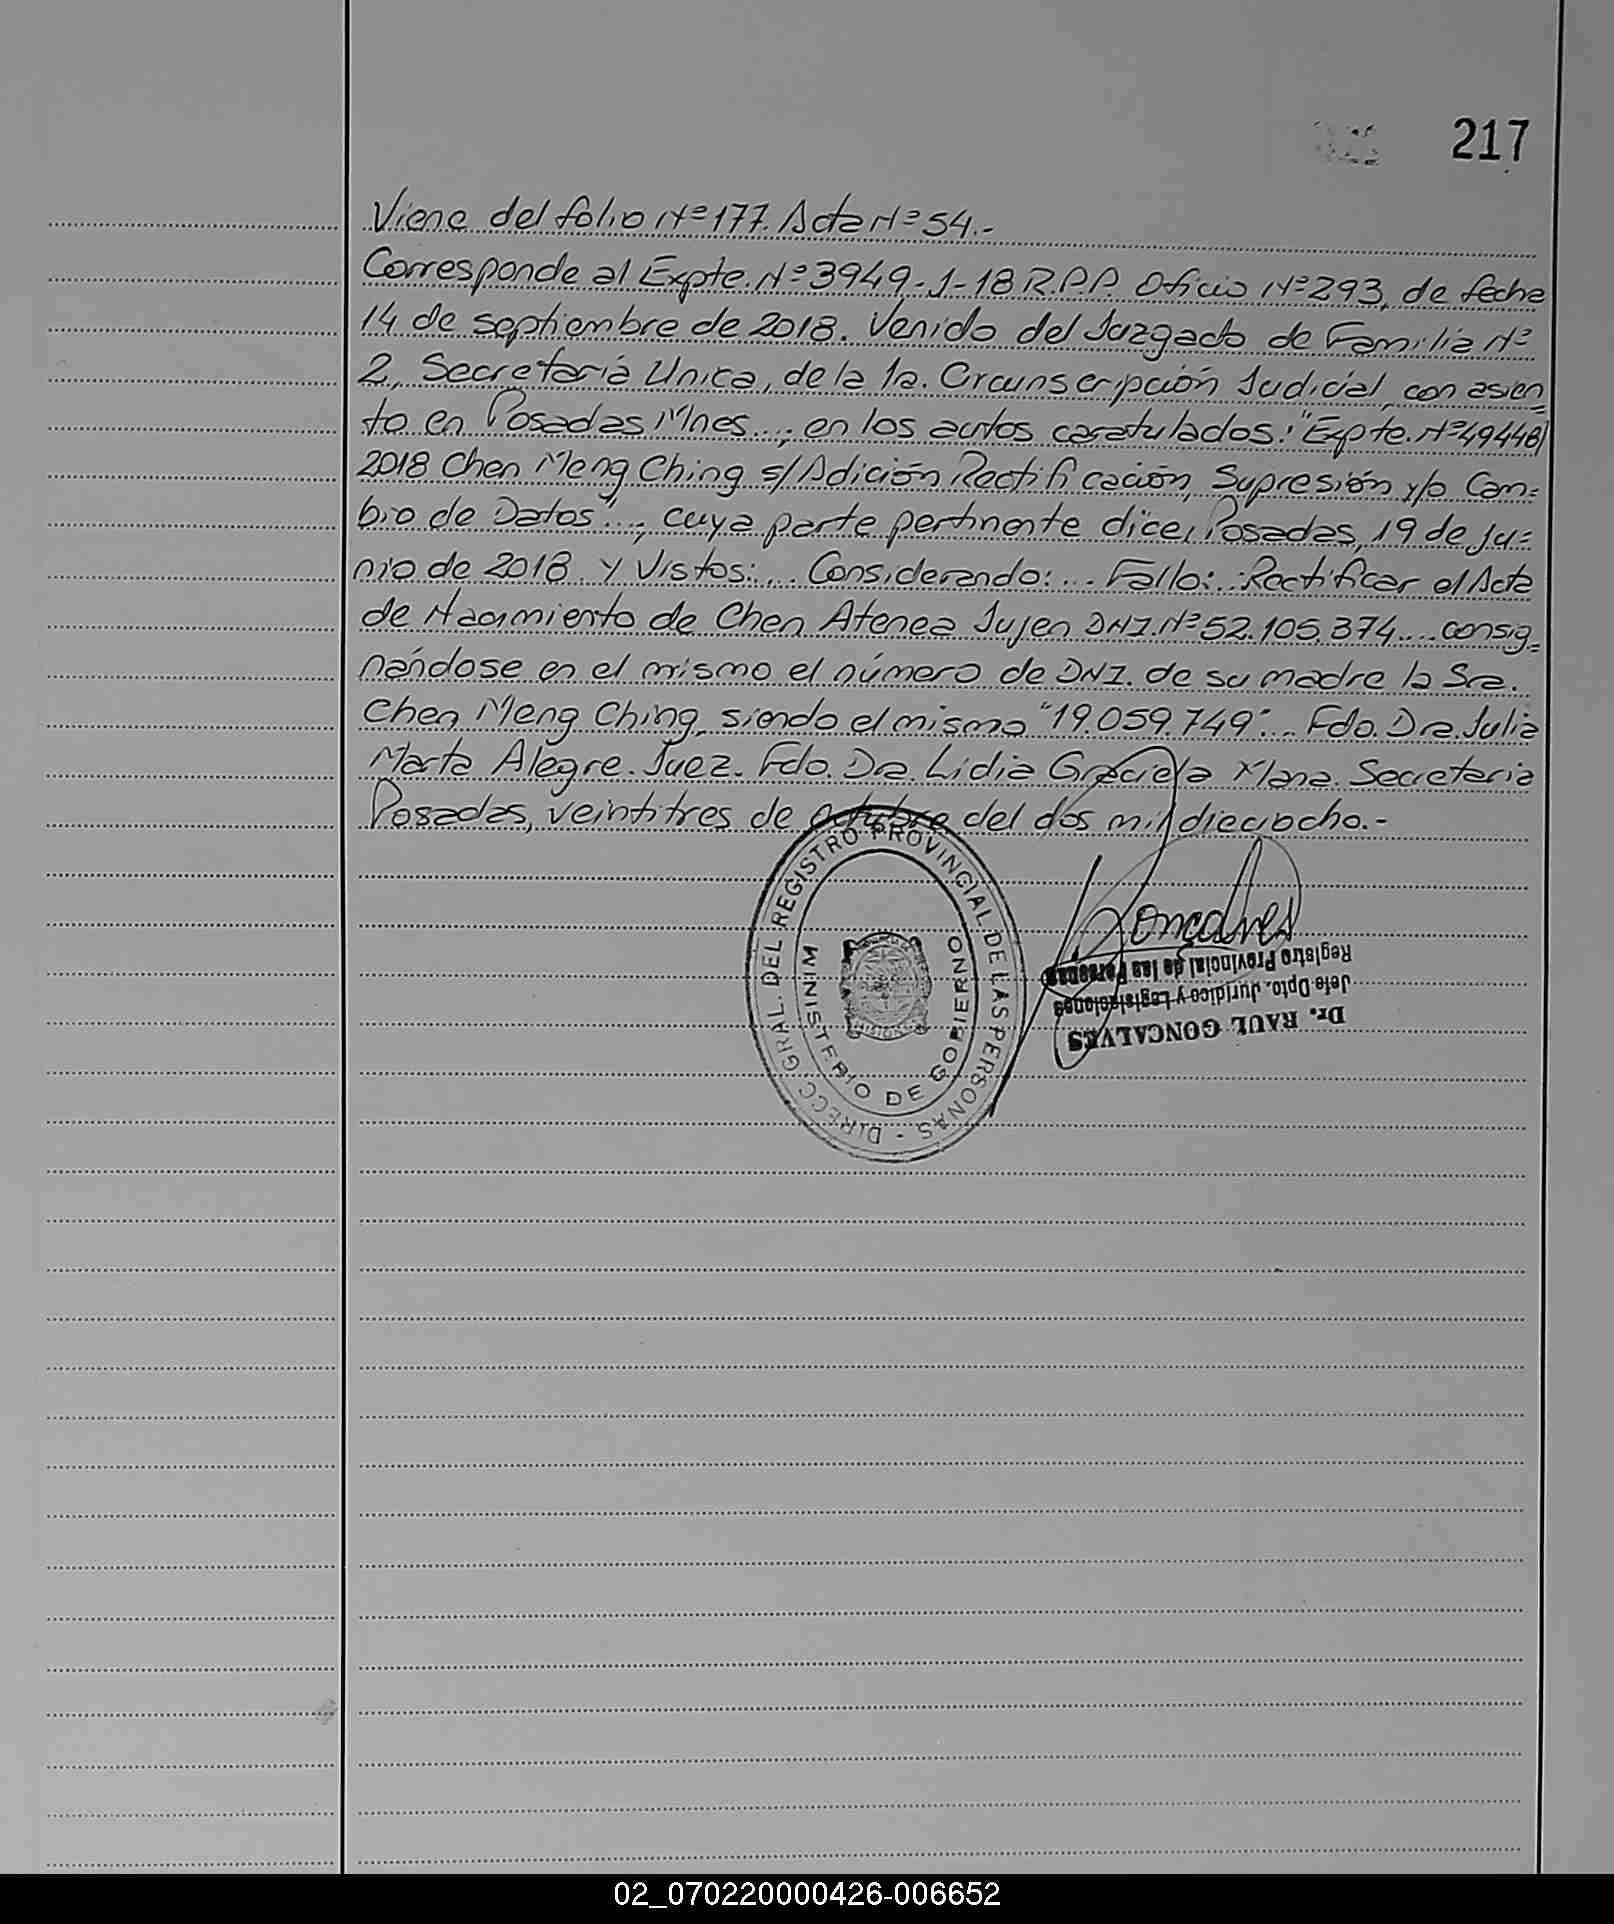 217
Viene del folio Nº 177. Acta Nº 54.-
Corresponde al Expte. Nº 3949-1-18 R.P.P. Oficio Nº 293, de fecha
14 de septiembre de 2018. Venido del Juzgado de Familia Nº
2, Secretaría Unica, de la 1a. Circunscripción Judicial, con asien=
to en Posadas Mnes...; en los autos caratulados: "Expte. Nº 49448/
2018 Chen Meng Ching s/ Adición Rectificación, Supresión y/o Cam=
bio de Datos"...; cuya parte pertinente dice, Posadas, 19 de ju=
nio de 2018. Y Vistos:... Considerando:... Fallo:..Rectificar el Acta
de Nacimiento de Chen Atenea Jujen DNI. Nº 52.105.374.... consig=
nándose en el mismo el número de DNI. de su madre la Sra.
Chen Meng Ching, siendo el mismo "19.059.749"... Fdo. Dra. Julia
Marta Alegre. Juez. Fdo. Dra. Lidia Graciela Secretaria
Posadas, veintitres de octubre del dos mil dieciocho.-
DIRECC. GRAL. DEL REGISTRO PROVINCIAL DE LAS PERSONAS -
MINISTERIO DE GOBIERNO
MISIONES
Goncalves
Dr. RAUL GONCALVES
Jefe Dpto. Jurídico y Legislaciones
Registro Provincial de las Personas
02_070220000426-006652